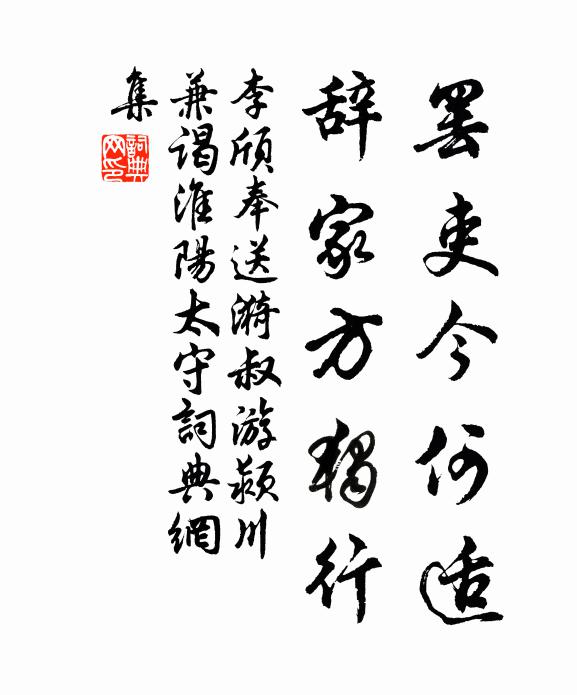 罢吏今何适
辞家方独行
李頎奉送漪叔游颍川
兼谒淮陽太守詞典網
集
詞典网印